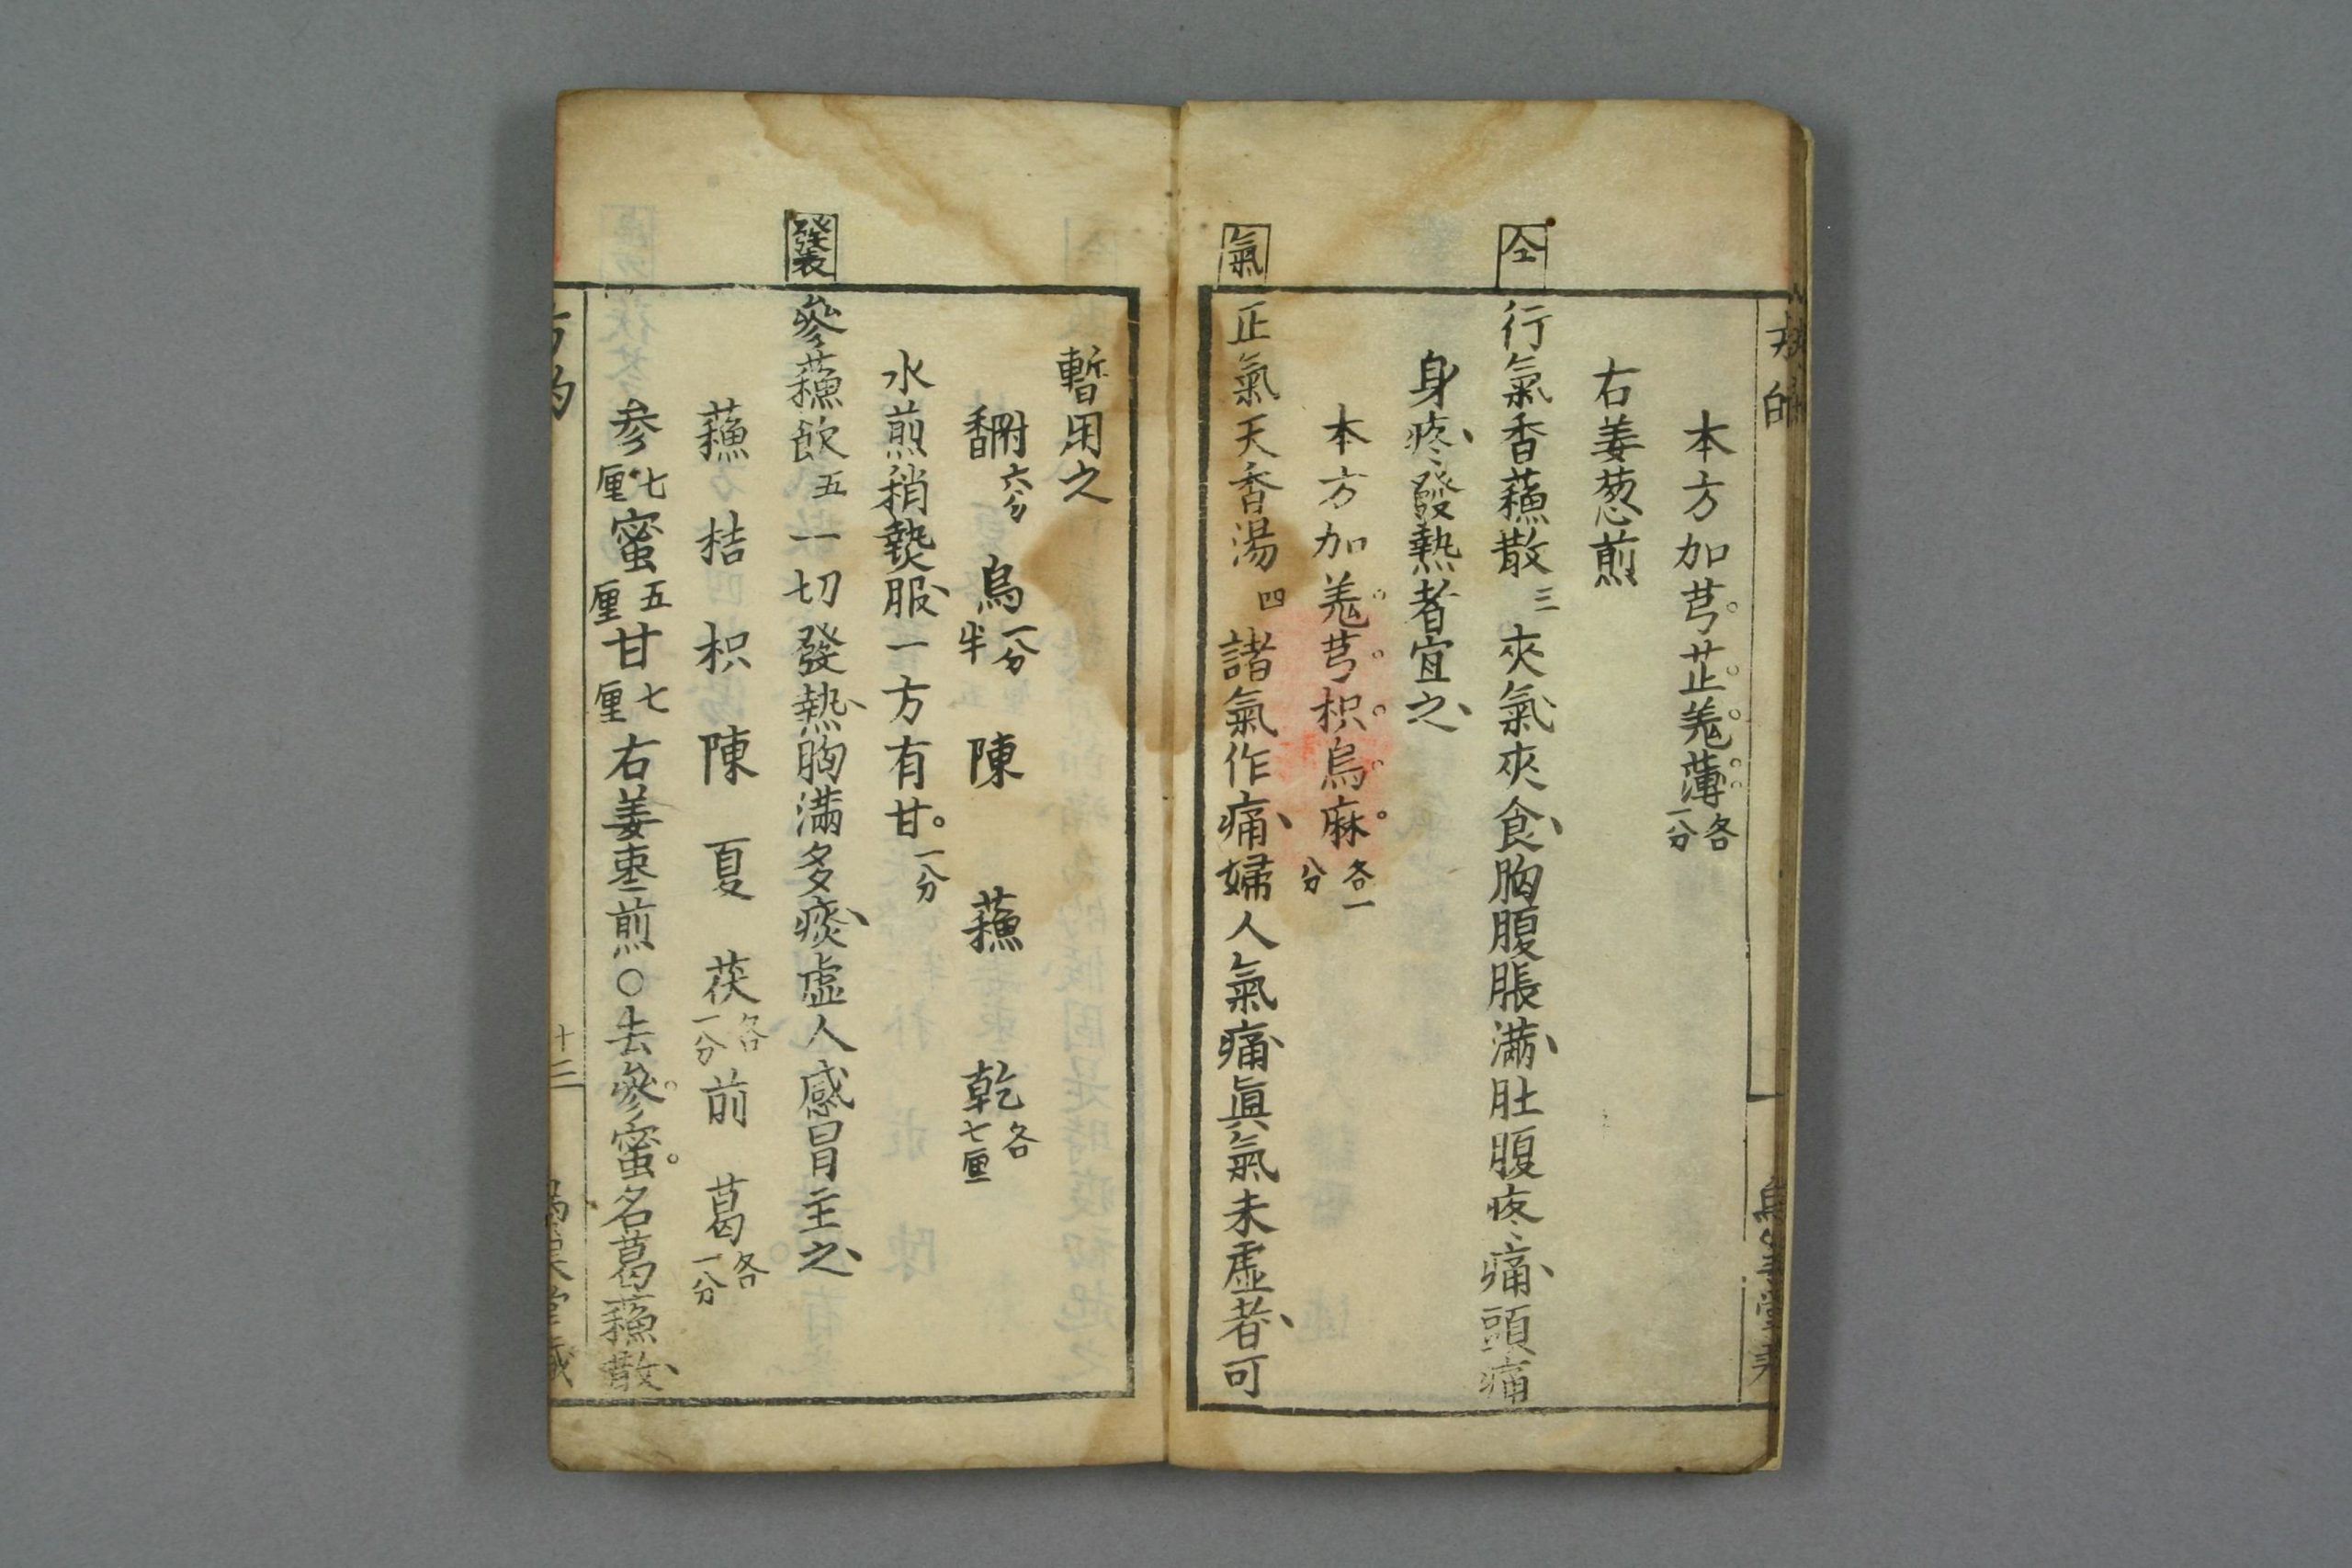 本方加芎芷羗薄各一分
右姜葱煎
仝
行氣香蘓散三 夾氣夾食胸腹脹滿肚腹疼痛頭痛
身疼發熱者宜之
本方加羗芎枳烏麻各一分
氣
正氣天香湯四 諸氣作痛婦人氣痛眞氣未虛者可
暫用之
香附六分 烏一分半 陳 蘓 乾各七厘
水煎稍熱服一方有甘一分
發表
參蘓飲五 一切發熱胸滿多痰虛人感冒主之
蘓 桔 枳 陳 夏 茯各一分 前 葛各一分
参七厘 蜜五厘 甘七厘 右姜枣煎○去參蜜名葛蘓散
十三